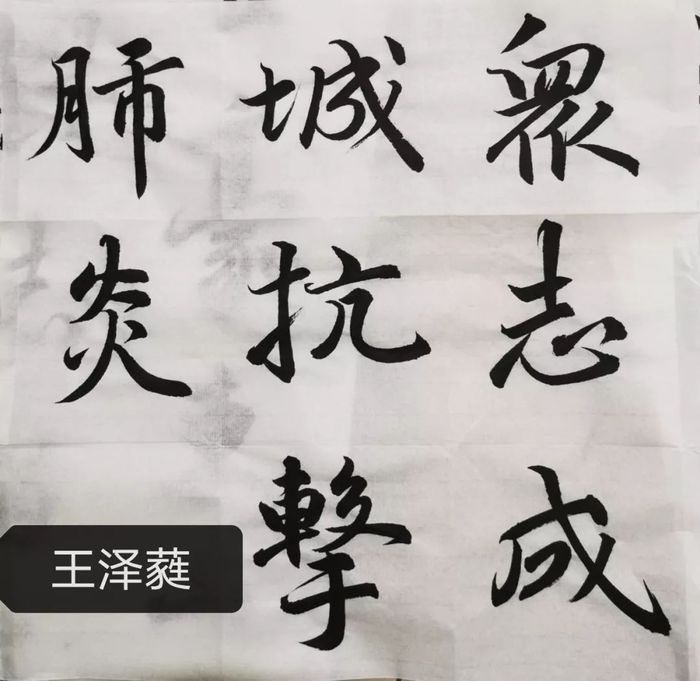 眾志成
城抗擊
肺炎
王泽蕤